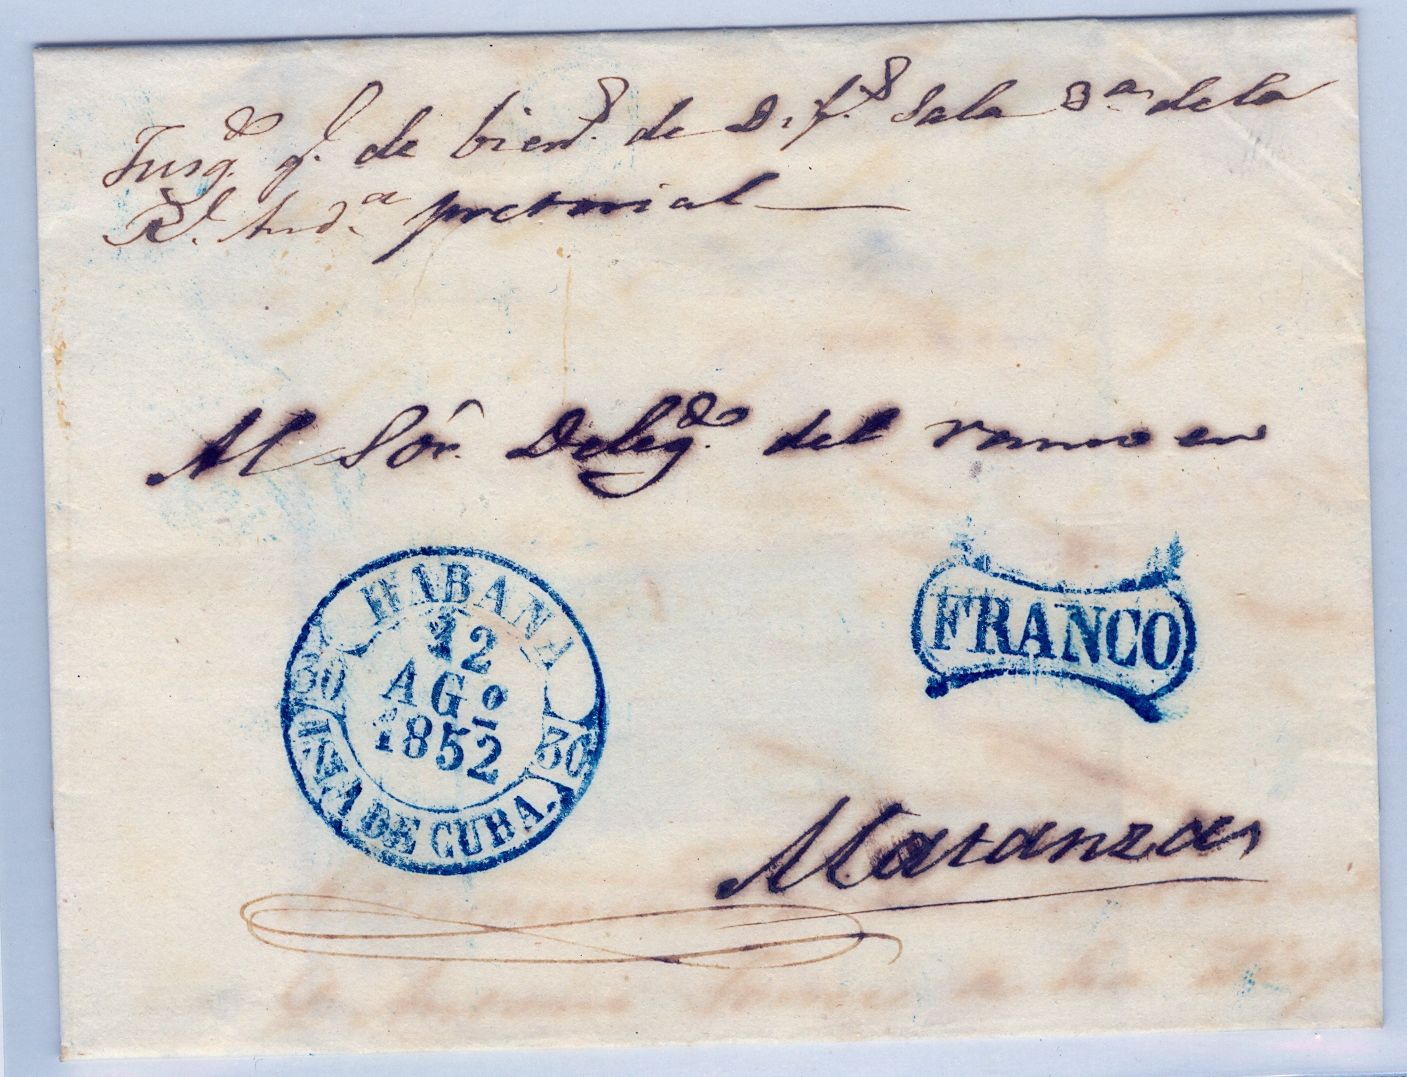 Jusg.do g.l de bien.s de D. f.s Sala 3a de la
R.l Aud.a pretorial
Al Sōr. Deleg.do del ramo en
HABANA
12
AGº
1852
30
30
ISLA DE CUBA.
FRANCO
Matanzas